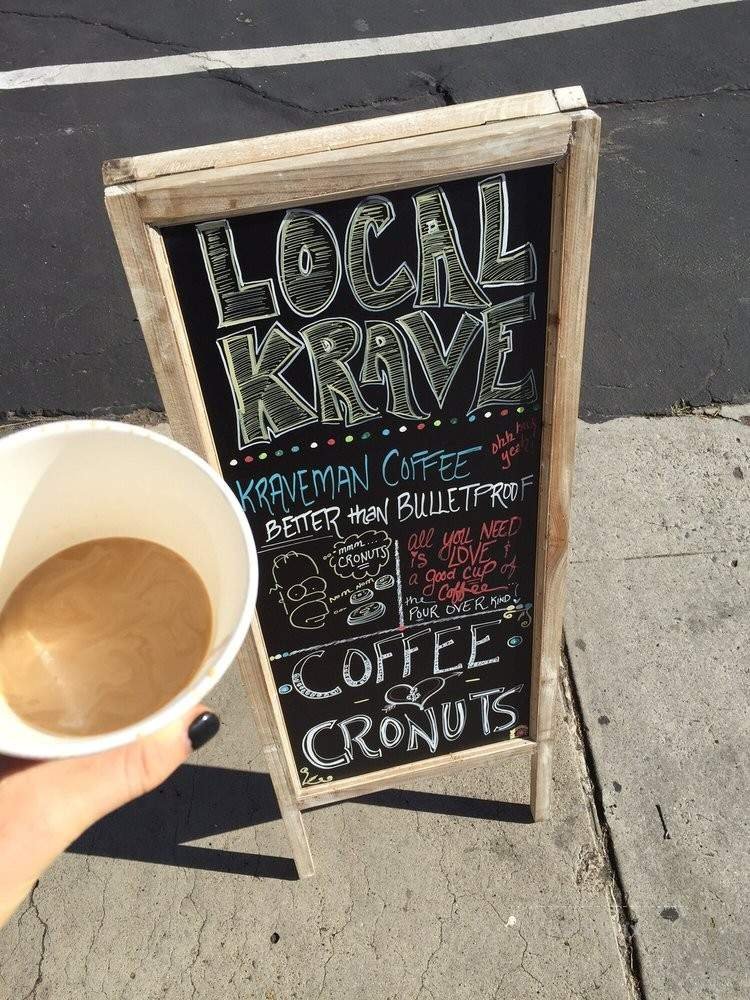 LOCAL
KRAVE
KRAVEMAN COFFEE
ohh
yeah!
BETTER than BULLETPROOF
mmm...
CRONUTS
NOM NOM
all you NEED
is LOVE &
a good cup of
Coffee
the
POUR OVER KIND!
COFFEE
&
CRONUTS